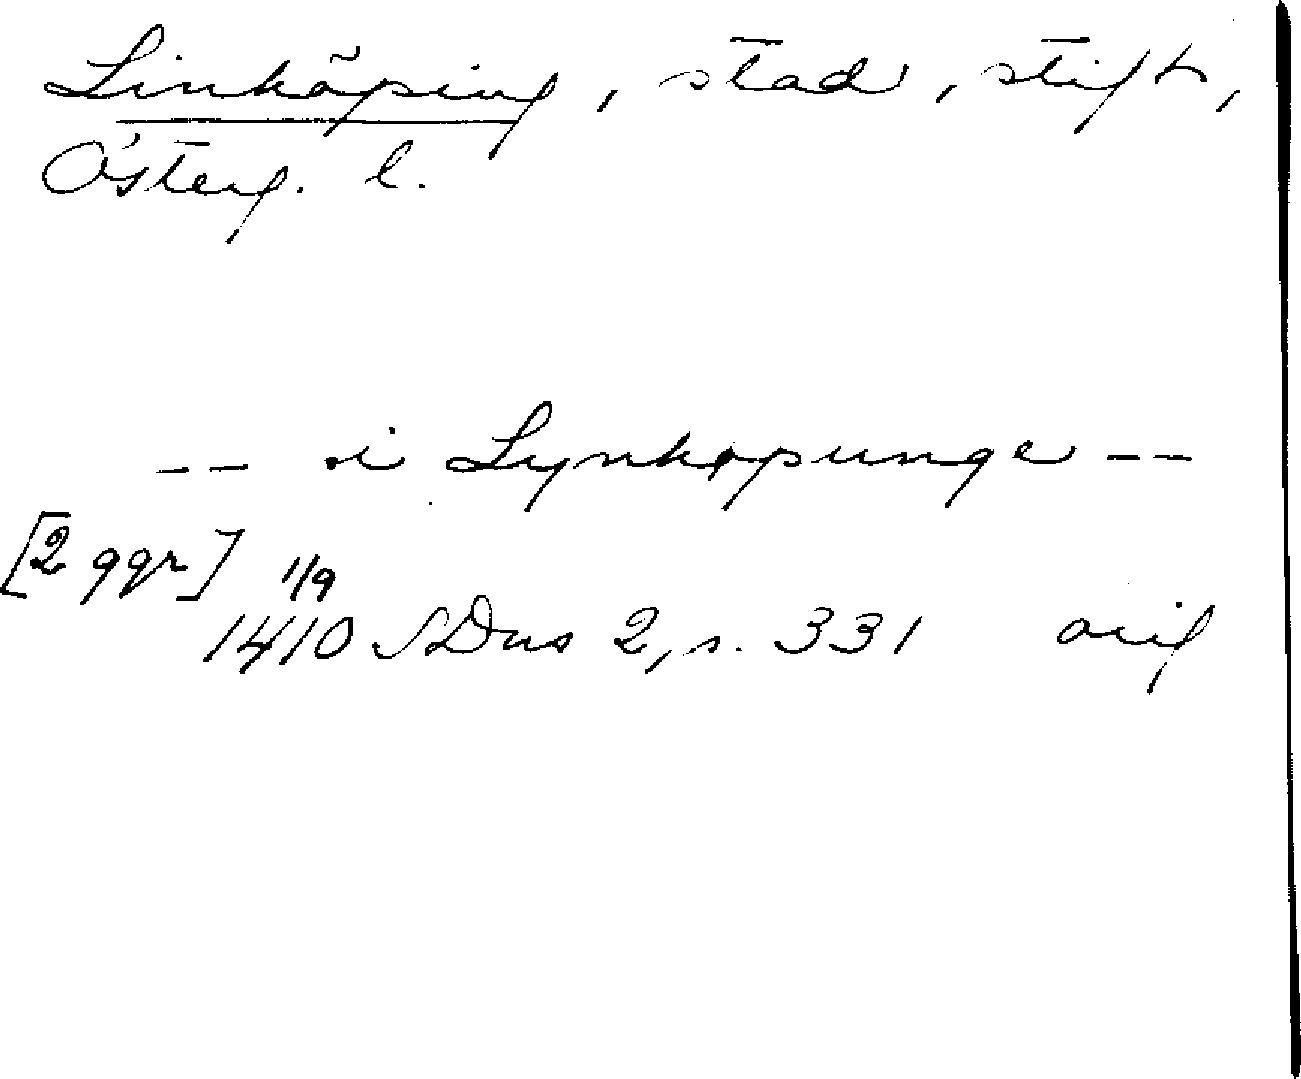 Linköping, stad, stift,
Österg. l.
-- i Lynkøpunge --
[2 ggr] 1/9
1410 SDns 2, s. 331 orig